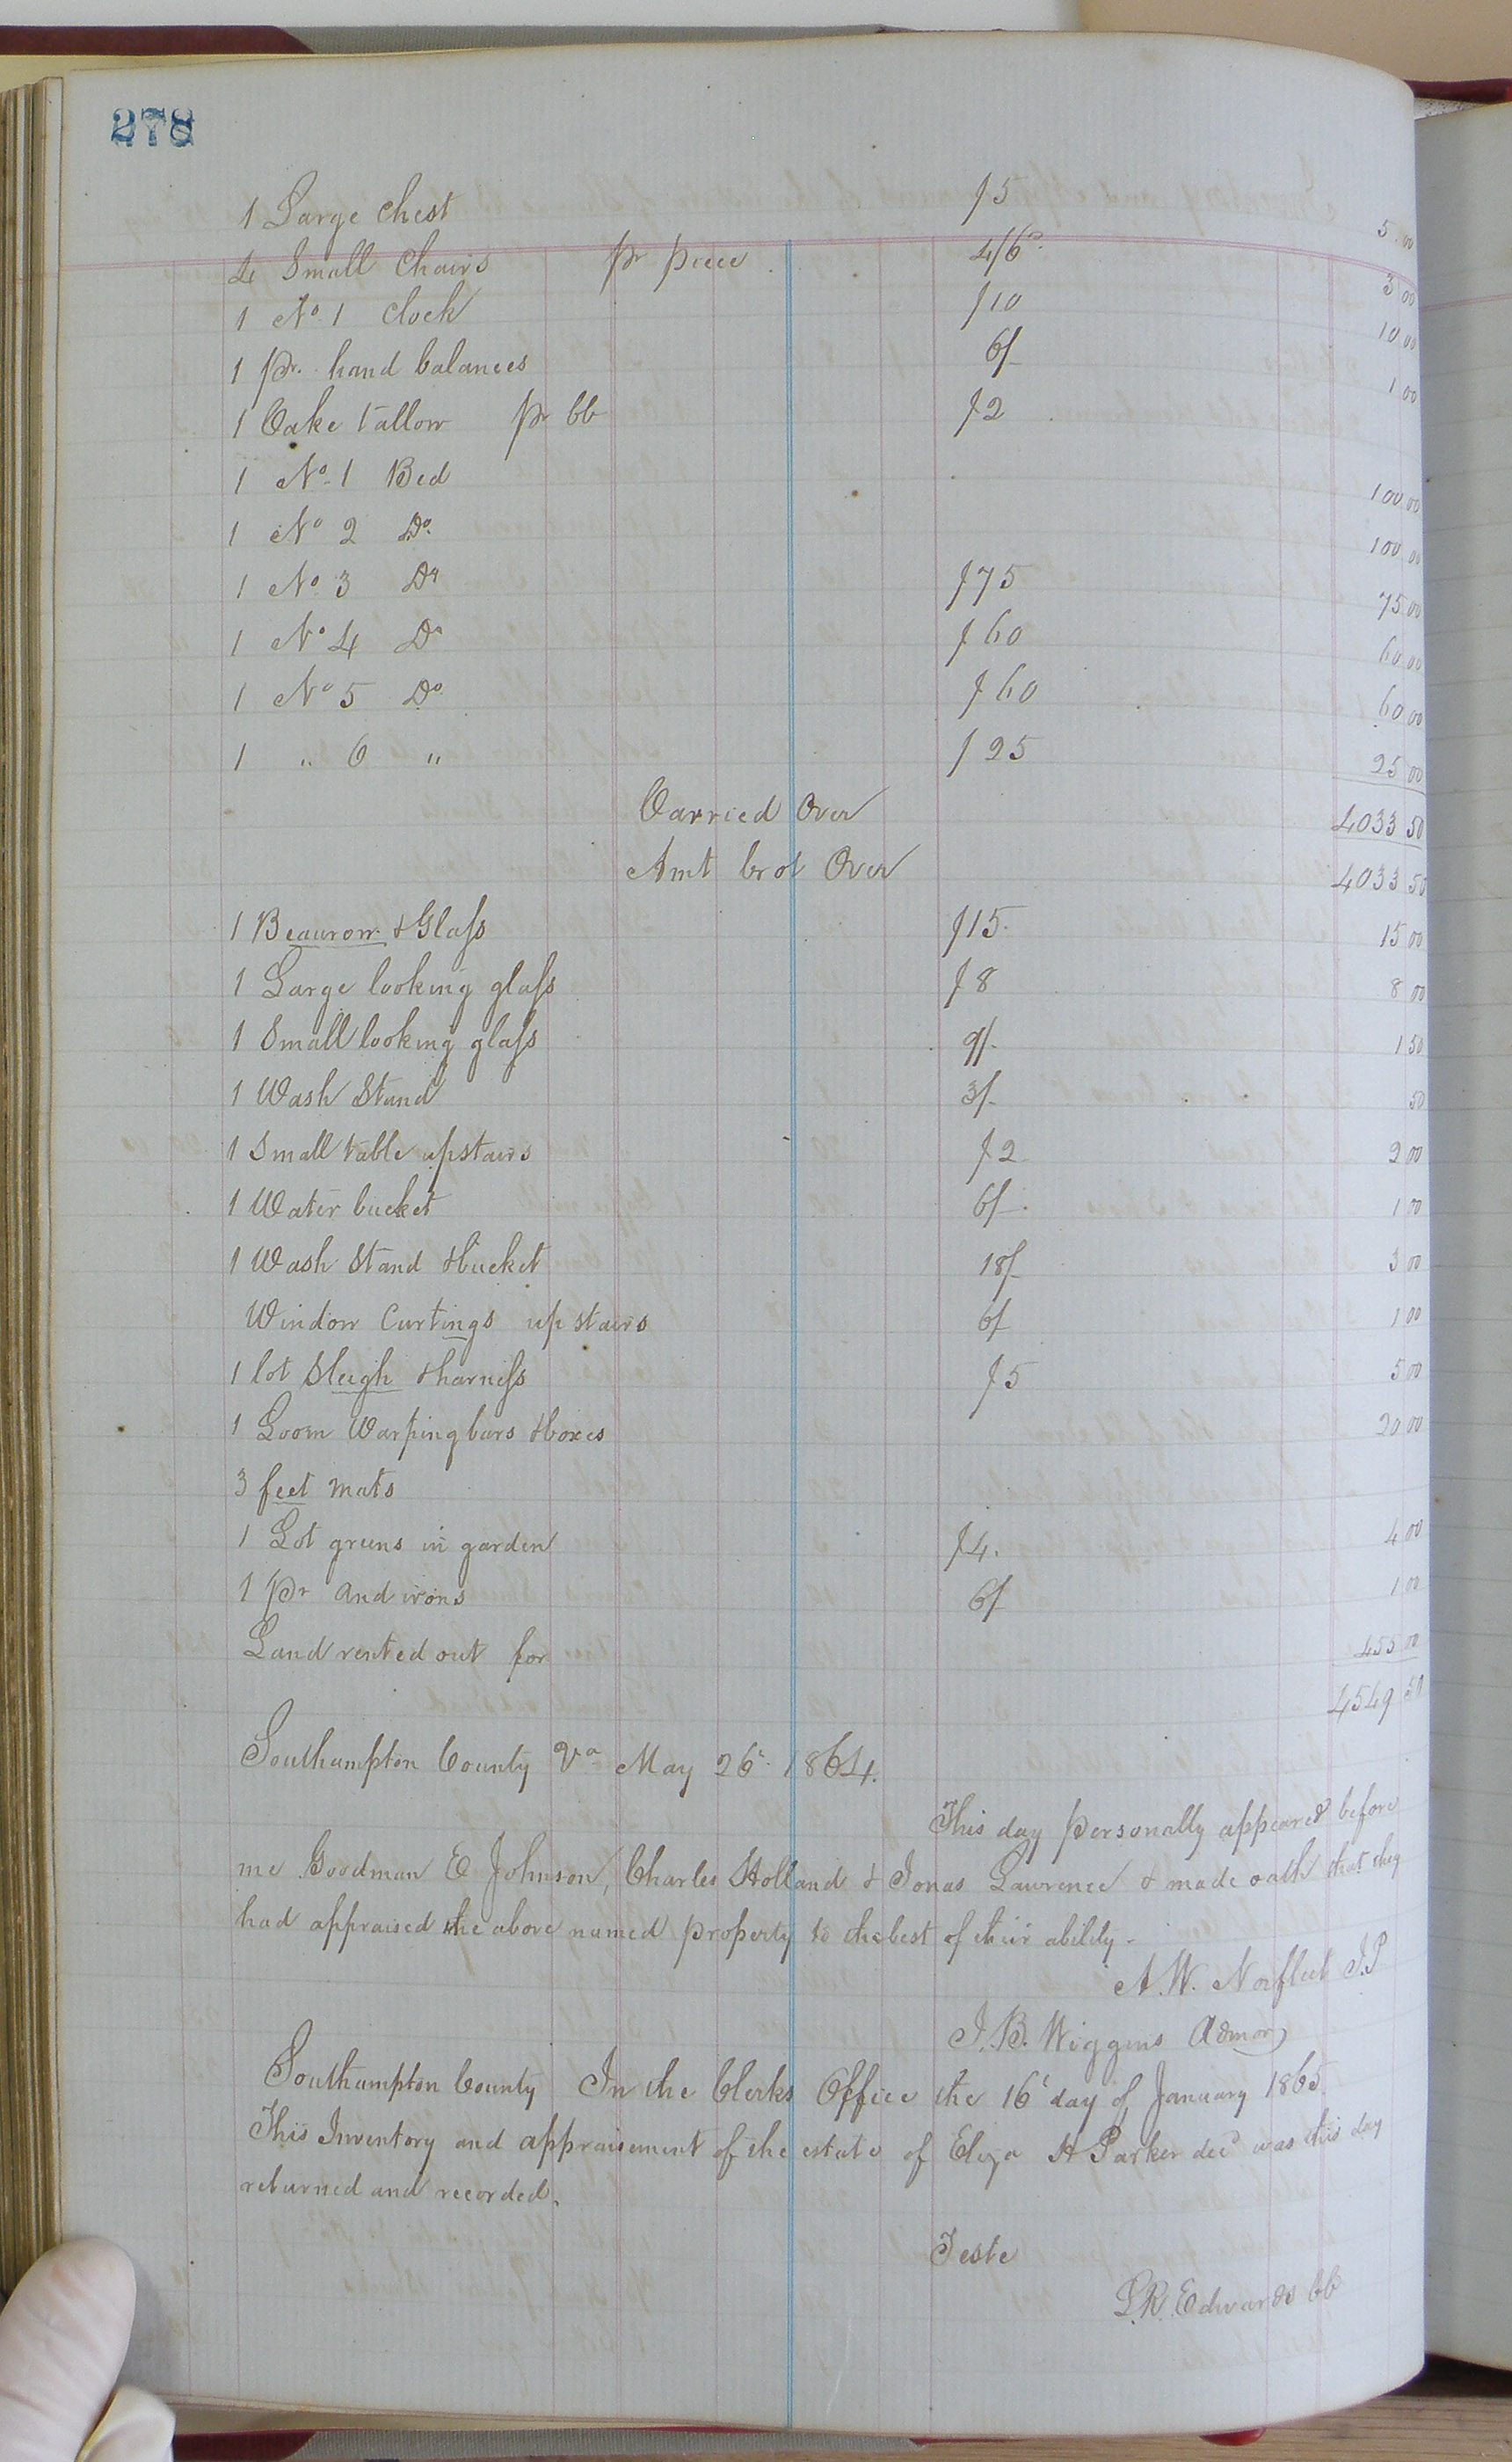 278
1 Large Chest $5 5 00
4 Small Chairs pr piece 4/6 3 00
1 No. 1 Clock $10 10 00
1 pr. hand balances 6/- 1 00
1 Cake tallow pr lb $2
1 No. 1 Bed 100 00
1 No 2 Do. 100 00
1 No. 3 Do $75 75 00
1 No 4 Do $60 60 00
1 No 5 Do $60 60 00
1 " 6 " $25 25 00
Carried Over 4033 50
Amt brot Over 4033 50
1 Beaurow & Glass $15. 15 00
1 Large looking glass $8 8 00
1 Small looking glass 9/- 1 50
1 Wash Stand 3/- 50
1 Small table upstairs $2 2 00
1 Water bucket 6/- 1 00
1 Wash Stand & bucket 18/- 3 00
Window Curtings up stairs 6/- 1 00
1 lot Sleigh & harness $5 5 00
1 Loom Warping bars & boxes 20 00
3 feet mats
1 Lot greens in garden $4. 4 00
1 Pr and irons 6/- 1 00
Land rented out for 455 00
4549 50
Southampton County Va May 26t 1864.
This day personally appeared before
me Goodman E Johnson, Charles Holland & Jonas Lawrence & made oath that they
had appraised the above named property to the best of their ability.
A. W. Norfleet J.P
J. B. Wiggins Admor
Southampton County In the Clerks Office the 16t day of January 1865.
This Inventory and appraisement of the estate of Eliza H Parker decd was this day
returned and recorded.
Teste
L. R. Edwards CC